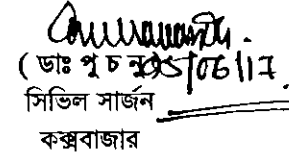 ( ডাঃ পু চ নু) 05/06/17
সিভিল সার্জন
কক্সবাজার